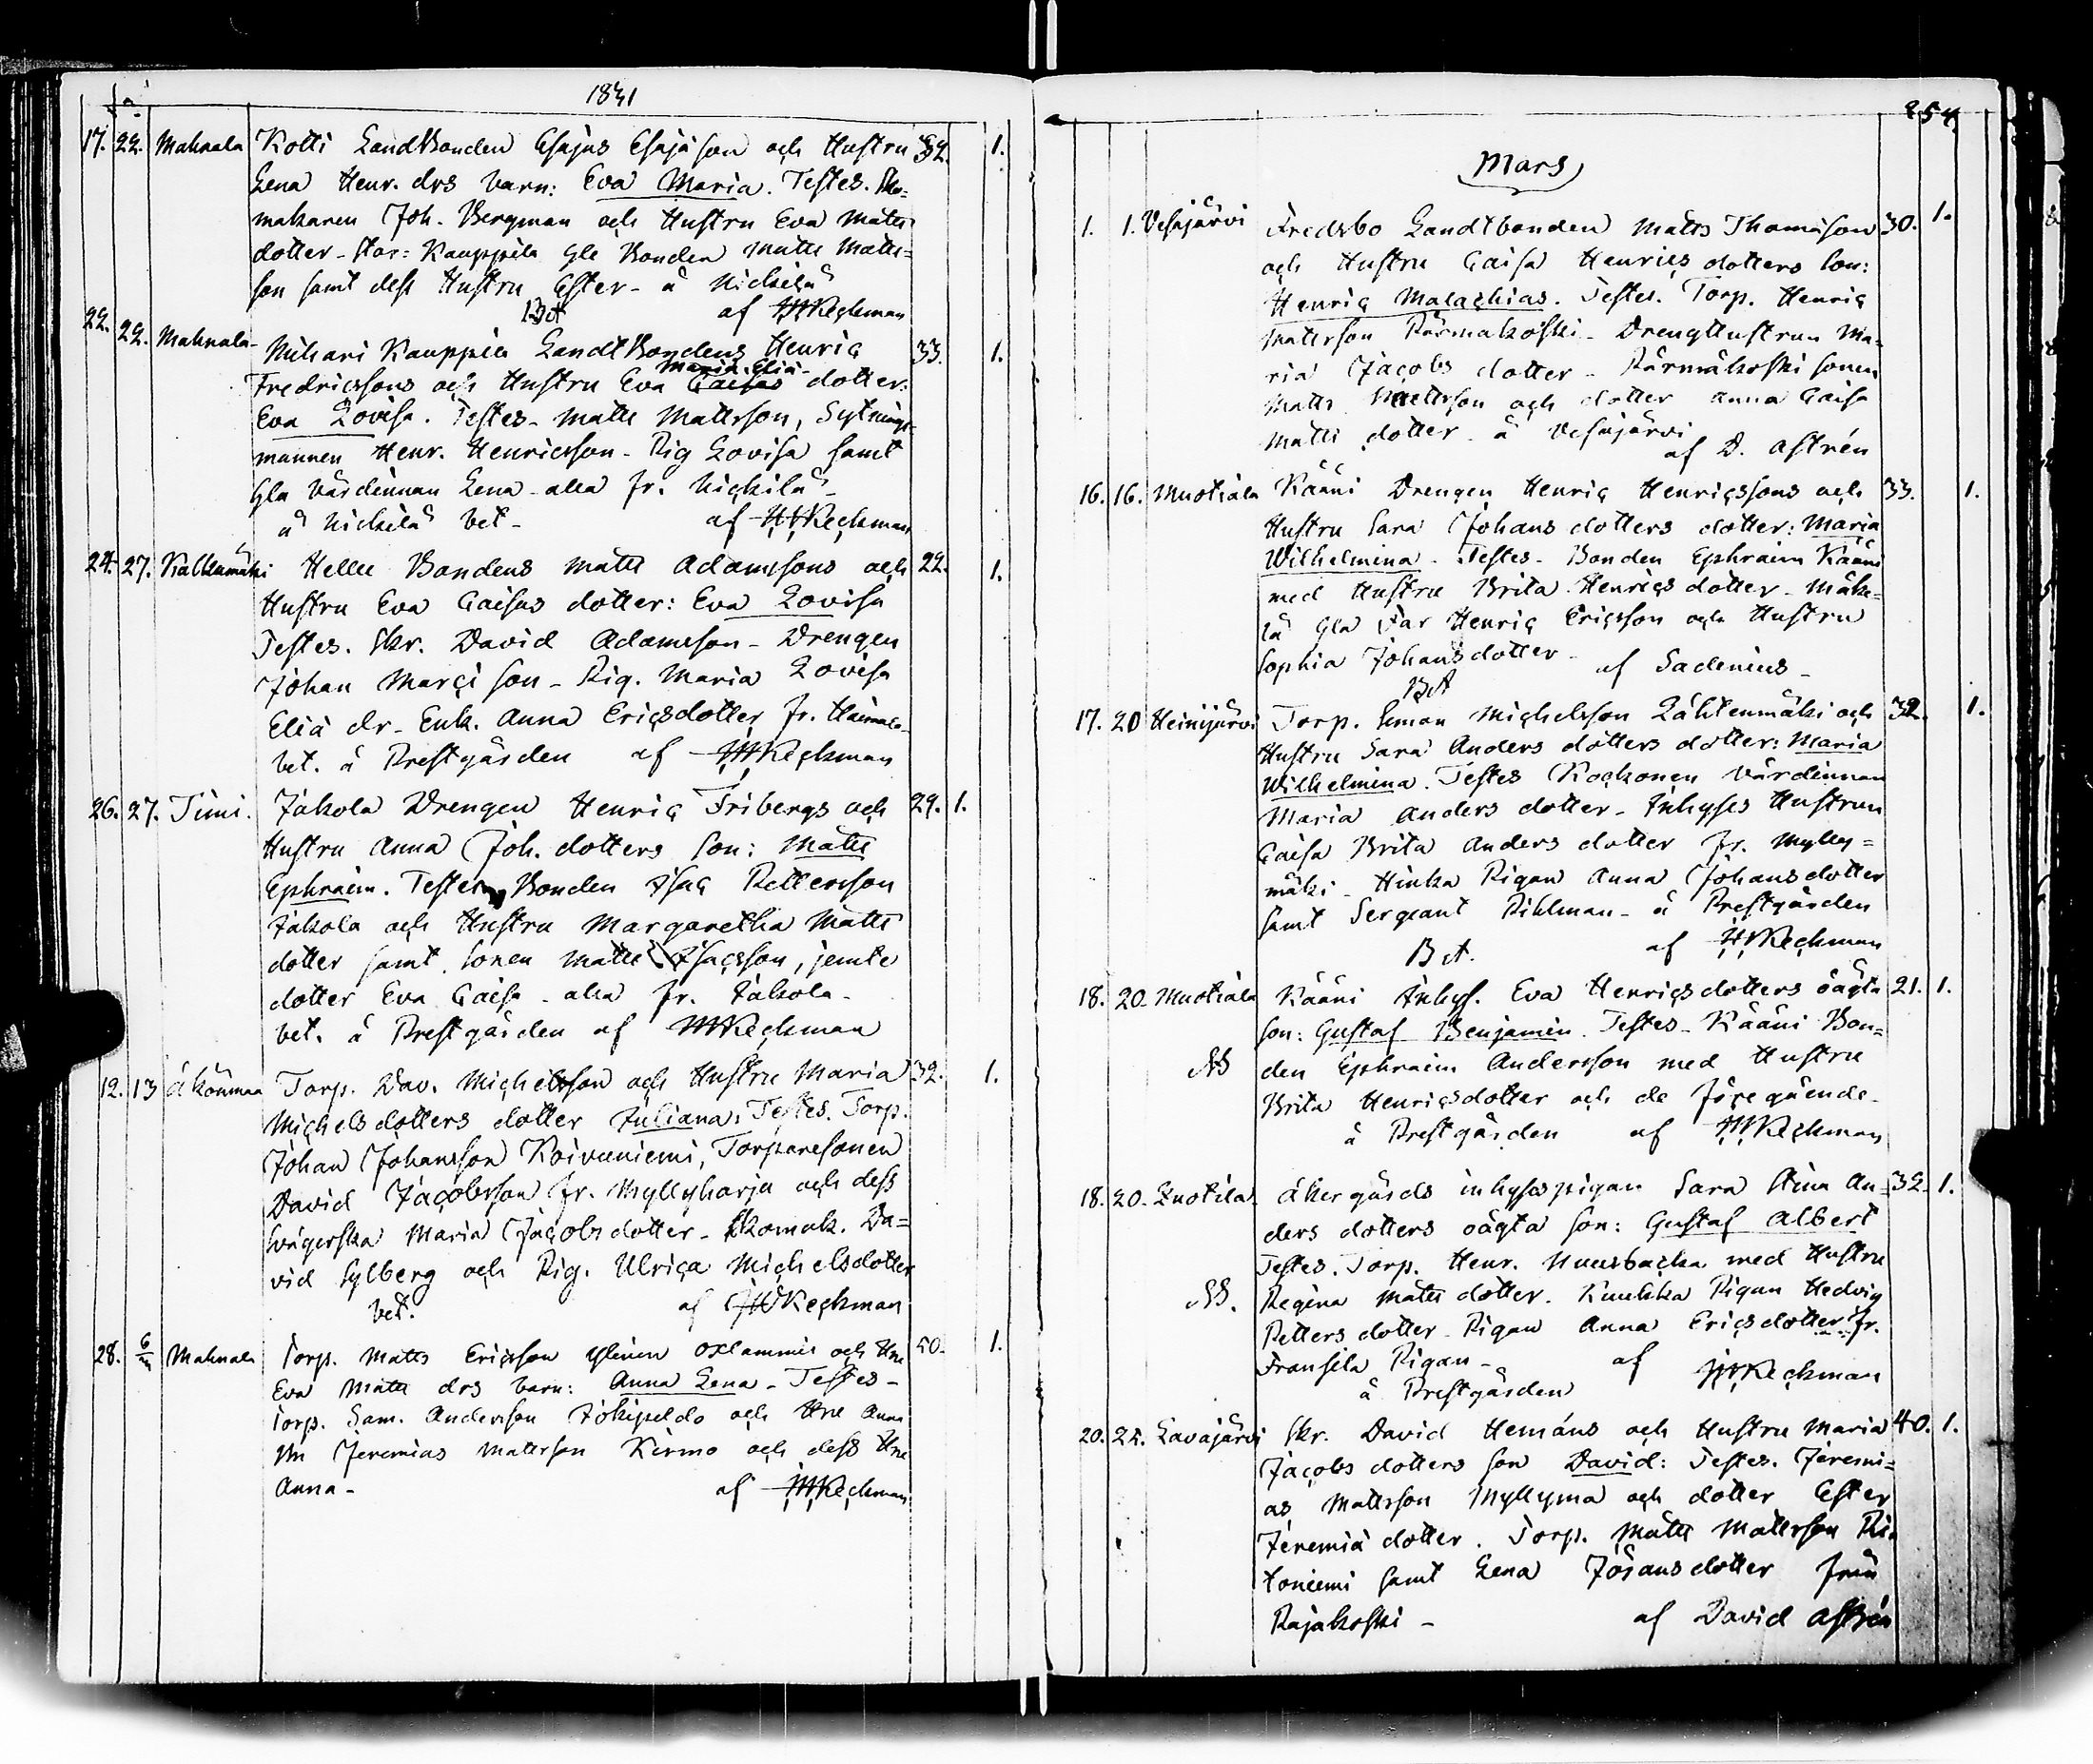 1831
17. 22. Mahnala Kotti Landtbonden Esajas Esajæson och Hustru 32. 1.
Lena Henr. drs barn: Eva Maria. Testes. Sko-
makaren Joh. Bergman och Hustru Eva Matts
dotter - Kauppila Gle Bonden Matts Matts=
son samt dess Hustru Ester - à Nickilä
Bet af HWKeckman
22. 22. Mahnala - Mihari Kauppila Landtbondens Henric 33. 1.
Maria Eliæ -
Fredricssons och Hustru Eva Caisas dotter:
Eva Lovisa. Testes - Matts Mattsson, Sytnings-
mannen Henr. Henricsson - Pig Lovisa samt
Gla Värdinnan Lena - alla fr. Nickilä -
à Nickilä bet - af HWKeckman
24. 27. Kalkunmäki Helle Bondens Matts Adamssons och 22. 1.
Hustru Eva Caisas dotter: Eva Lovisa
Testes. Skr. David Adamsson - Drengen
Johan Marci son - Pig. Maria Lovisa
Eliæ dr - Enk. Anna Ericsdotter fr.
bet. à Prestgården af HWKeckman
26. 27. Timi. Jakola Drengen Henric Fribergs och 29. 1.
Hustru Anna Joh. dotters son: Matts
Ephraim. Testes Bonden Isac Pettersson
Jakola och Hustru Margaretha Matts
dotter samt sonen Matts Isacsson, jemte
dotter Eva Caisa - alla fr. Jakola -
bet. à Prestgården af HWKeckman
12. 13 Äkönmaa Torp. Dav. Michelsson och Hustru Maria 32. 1.
Michels dotters dotter Juliana. Testes. Torp.
Johan Johansson Koivuniemi, Torparesonen
David Jacobsson fr. Myllyharju och dess
Svägerska Maria Jacobs dotter - Skomak. Da=
vid Sylberg och Pig. Ulrica Michelsdotter
bet. af HWKeckman
28. 6/3 Mahnala Torp. Matts Ericsson Ylinen Oxlammi och Hru 50. 1.
Eva Matts drs barn: Anna Lena - Testes -
Torp. Sam. Andersson Jokipeldo och Hru Anna
Jeremias Mattsson Kirmo och dess Hru
Anna - af HWKeckman
254.
Mars
1. 1. Vesajärvi Fredsbo Landtbonden Matts Thomæson 30. 1.
och Hustru Caisa Henrics dotters son:
Henric Malachias. Testes. Torp. Henric
Mattsson Pärmäkoski - Drenghustrun Ma-
ria Jacobs dotter - Pärmäkoski sonen
Matts Mattsson och dotter Anna Caisa
Matts dotter - à Vesajärvi af D. Astrén
16. 16. Muotiala Kääni Drengen Henric Henricssons och 33. 1.
Hustru Sara Johans dotters dotter: Maria
Wilhelmina - Testes - Bonden Ephraim Kääni
med Hustru Brita Henrics dotter - Mäke=
lä Gla Far Henric Ericsson och Hustru
Sophia Johans dotter - af Sadenius -
Bet
17. 20 Heinijärvi Torp. Eman Michelsson Lähtenmäki och 32. 1.
Hustru Sara Anders dotters dotter: Maria
Wilhelmina. Testes Kockonen Värdinnan
Maria Anders dotter - Inhyses Hustrun
Caisa Brita Anders dotter fr. Mylly=
mäki - Hinka Pigan Anna Johans dotter
samt Sergeant Pihlman - à Prestgården
Bet. af HWKeckman
18. 20. Muotiala Kääni Inhys. Eva Henricsdotters oägta 21. 1.
son: Gustaf Benjamin. Testes - Kääni Bon=
NB den Ephraim Andersson med Hustru
Brita Henricsdotter och de föregående -
à Prestgården af HWKeckman
18. 20. Luotila. Åkergårds inhysespigan Sara Stina An= 32. 1.
ders dotters oägta son: Gustaf Albert
Testes. Torp. Henr. Nuusbacka med Hustru
NB. Regina Matts dotter. Kuukka Pigan Hedvig
Petters dotter - Pigan Anna Ericsdotter fr.
Fransila Pigan - af HWKeckman
à Prestgården
20. 25. Lavajärvi Skr. David Hemáns och Hustru Maria 40. 1.
Jacobs dotters son David: Testes. Jeremi=
as Mattsson Myllymaa och dotter Ester
Jeremiæ dotter. Torp. Matts Mattsson Pi-
toniemi samt Lena Jöransdotter från
Rajakoski - af David Astrén